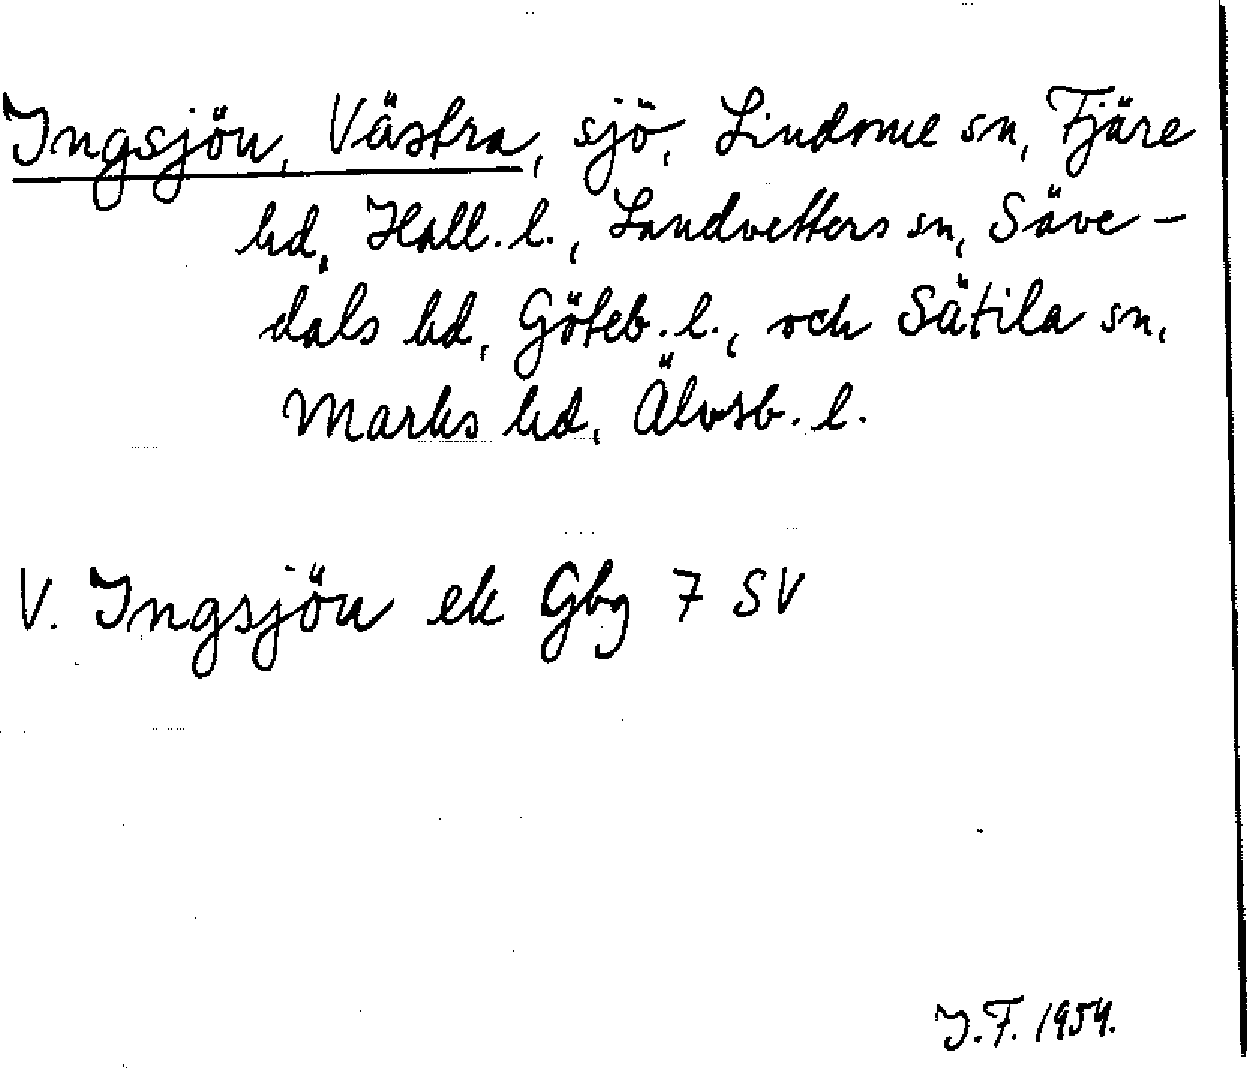 Ingsjön, Västra, sjö, Lindome sn, Fjäre
hd, Hall. l., Landvetters sn, Säve-
dals hd, Göteb. l., och Sätila sn,
Marks hd, Älvsb. l.
V. Ingsjön ek Gbg 7 SV
I.F. 1954.